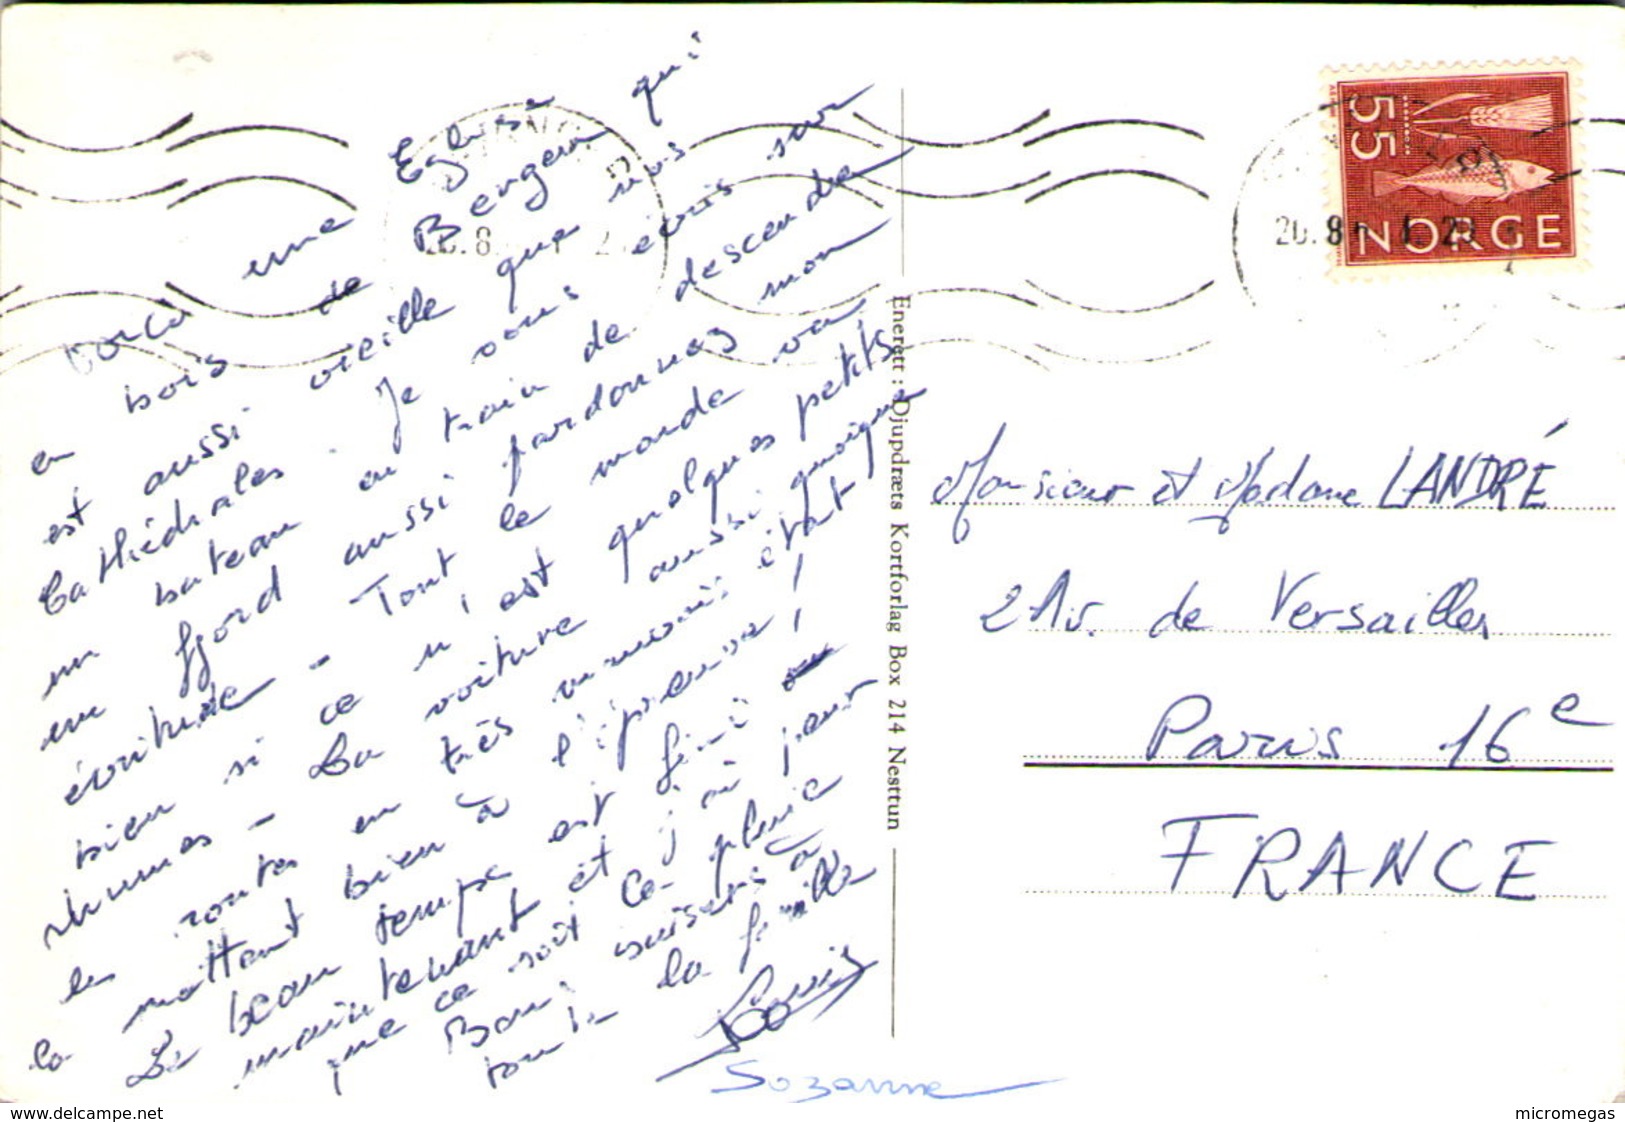 Voici une Eglise
en bois de Bergem qui
est aussi vieille que nos
Cathédrales. Je vous écris sur
un bateau en train de descendre
un fjord aussi pardonnez mon
écriture - Tout le monde va
bien si ce n'est quelques petits
rhumes - La voiture aussi quoique
les routes en très mauvais état
la mettent bien à l'épreuve !
Le beau temps est fini
maintenant et j'ai peur
que ce soit la pluie
Bons baisers à
toute la famille
Louis
Suzanne
Enerett: Djupdræts Kortforlag Box 214 Nesttun
55
NORGE
20.8
20.8
Monsieur et Madame LANDRÉ
2 Av. de Versailles
Paris 16e
FRANCE
www.delcampe.net
micromegas